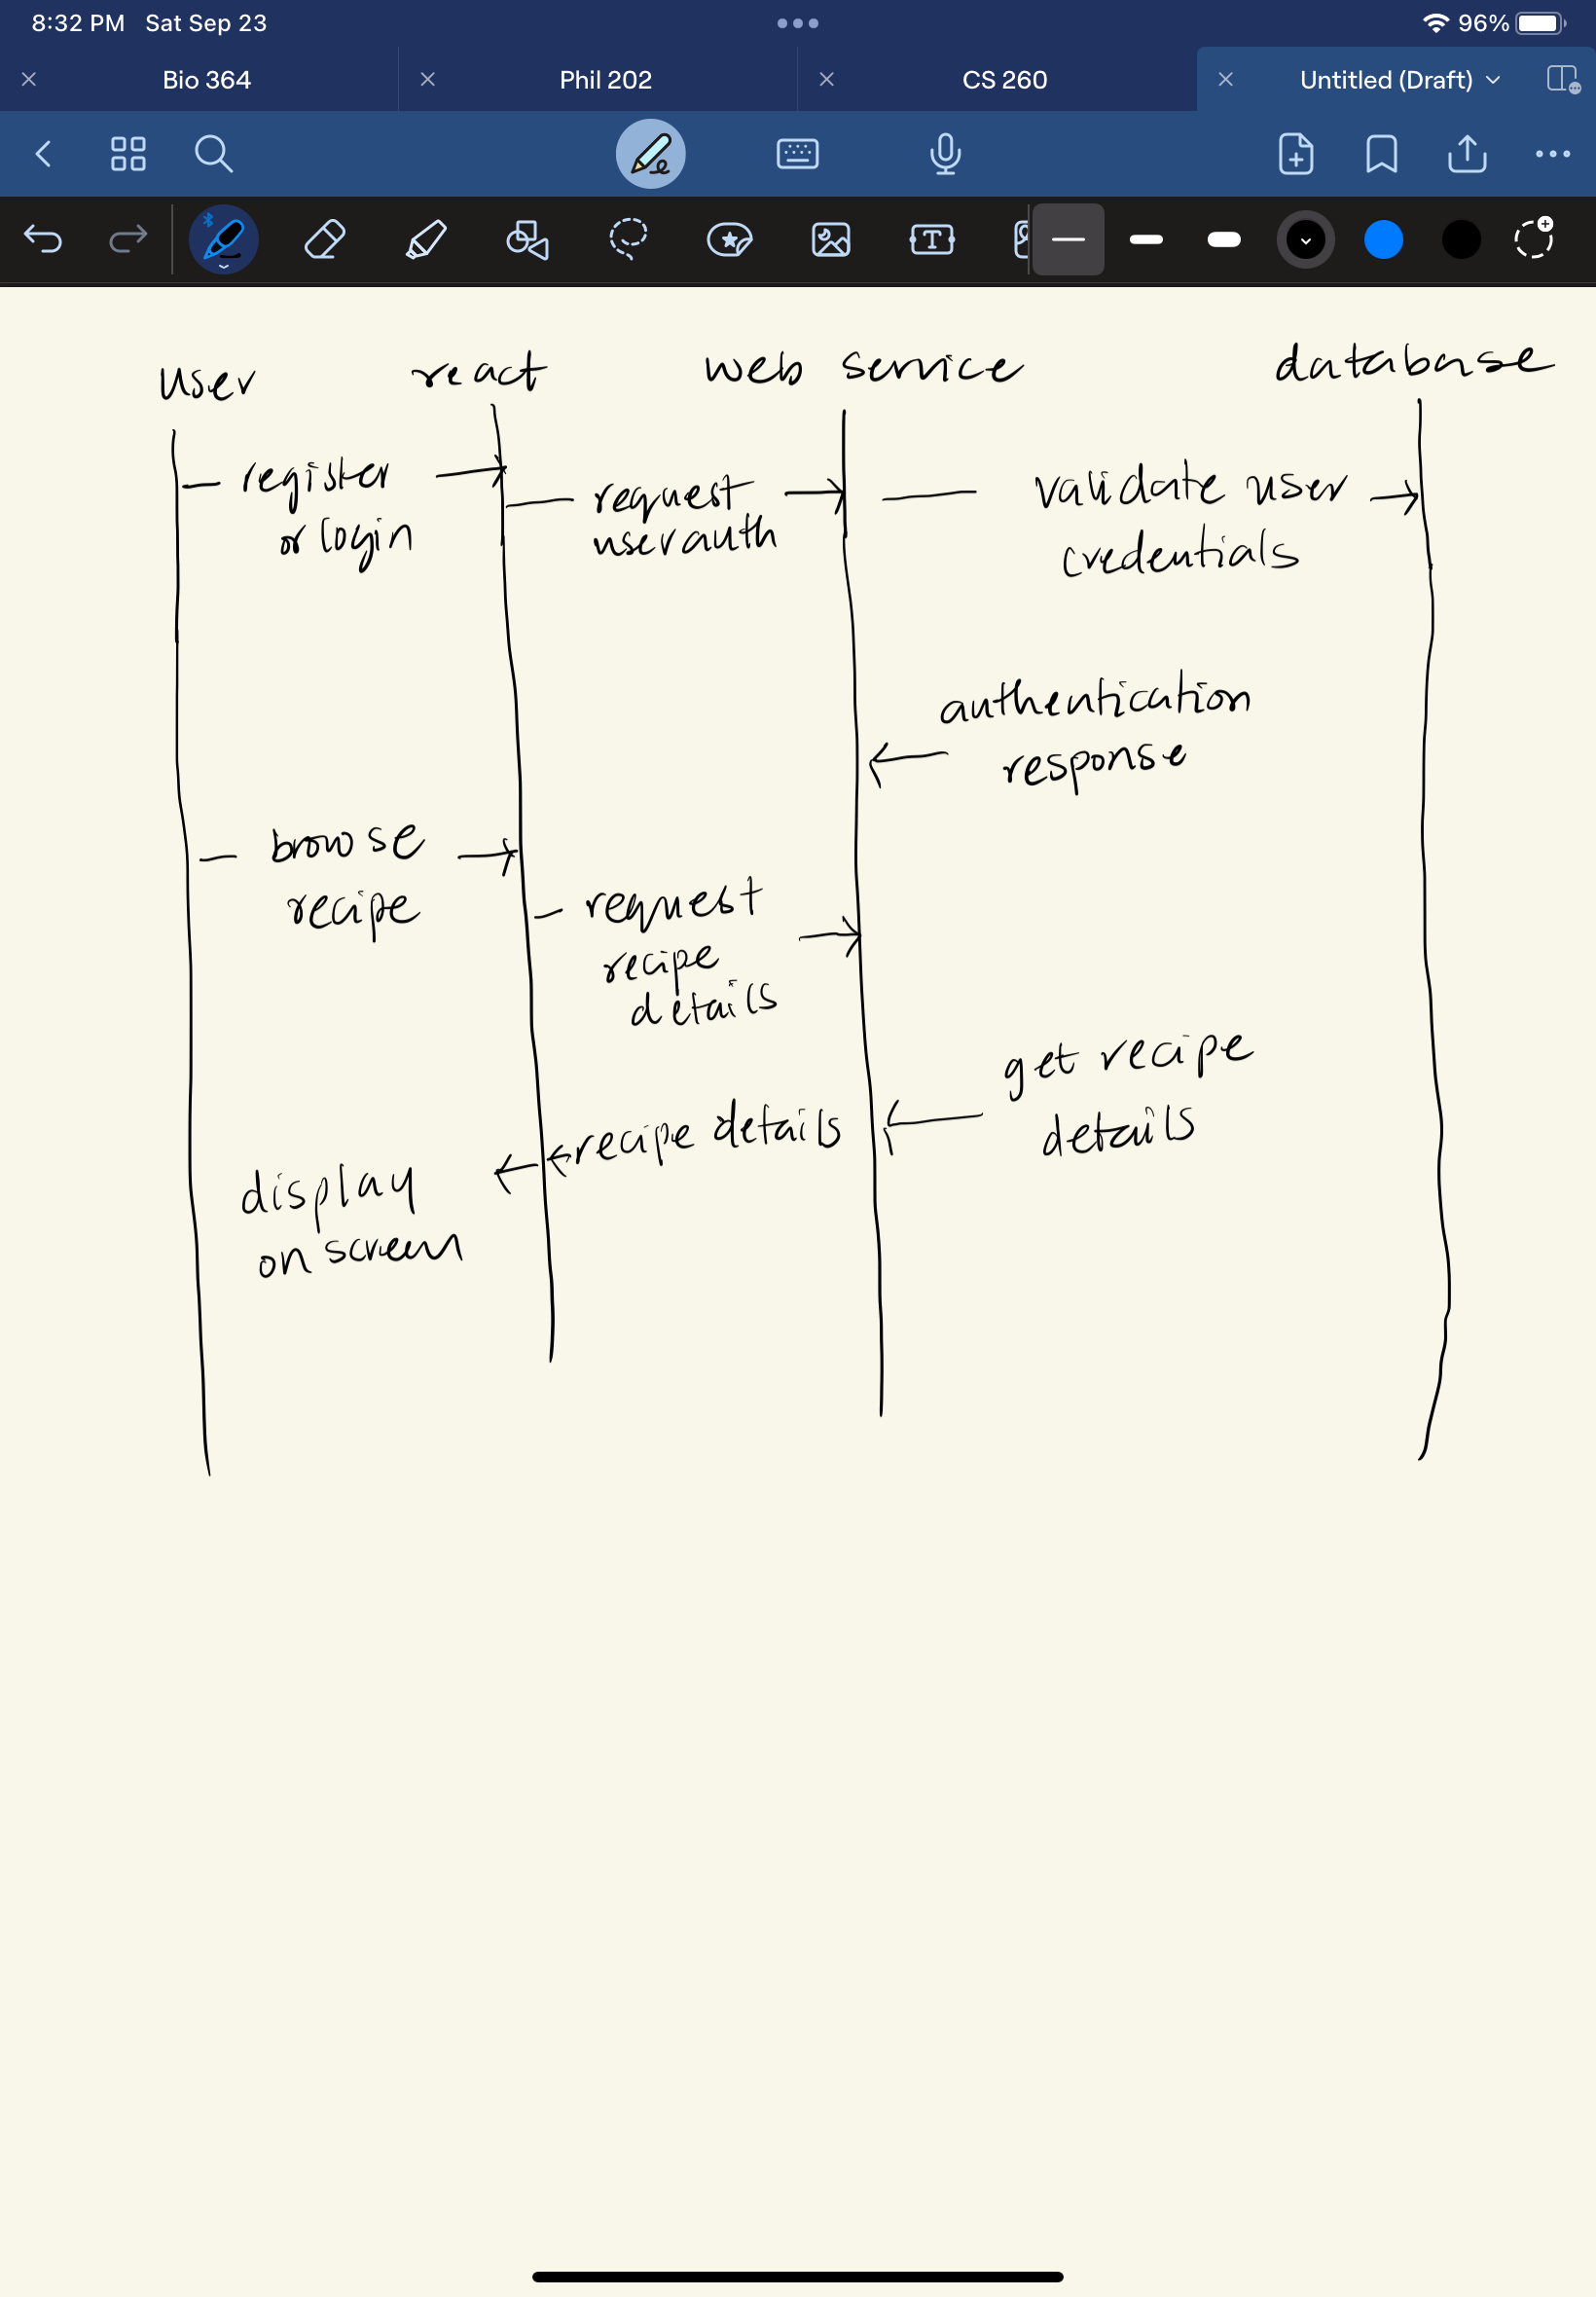 8:32 PM Sat Sep 23
96%
Bio 364
Phil 202
CS 260
Untitled (Draft)
user
react
web service
database
register
or login
request
user auth
validate user
credentials
authentication
response
browse
recipe
request
recipe
details
get recipe
details
recipe details
display
on screen